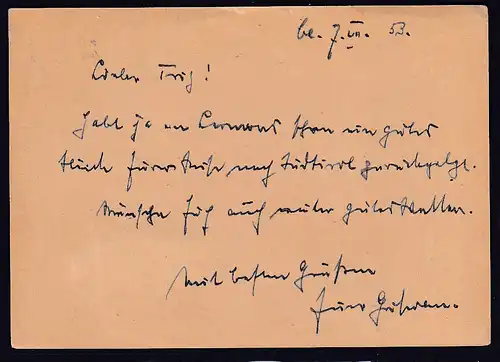 be. 7. VII. 53.
Lieber Fritz!
Habt ja in Lermoos schon ein gutes
Stück Eurer Reise nach Südtirol zurückgelegt.
Wünsche Euch auch weiter gutes Wetter.
Mit besten Grüßen
Euer